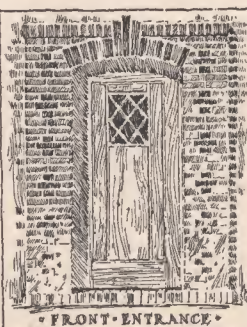 • FRONT • ENTRANCE •